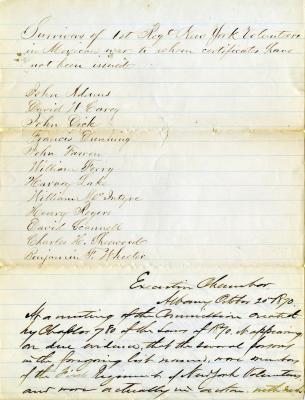 Survivors of 1st Regt New York Volunteers
in Mexican war to whom certificates have
not been issued
John Adams
David W Carey
John Dick
Francis Dunning
John Farren
William Ferry
Harvey Lake
William McIntyre
Henry Rogers
David Scannell
Charles H. Sherwood
Benjamin F. Wheeler
Executive Chamber
Albany Octbr 20 1870.
At a meeting of the Commission created
by Chapter 780 of the Laws of 1870. it appearing
on due evidence, that the several persons
in the foregoing list named, were members
of the First Regiment of New York Volunteers,
and were actually in action